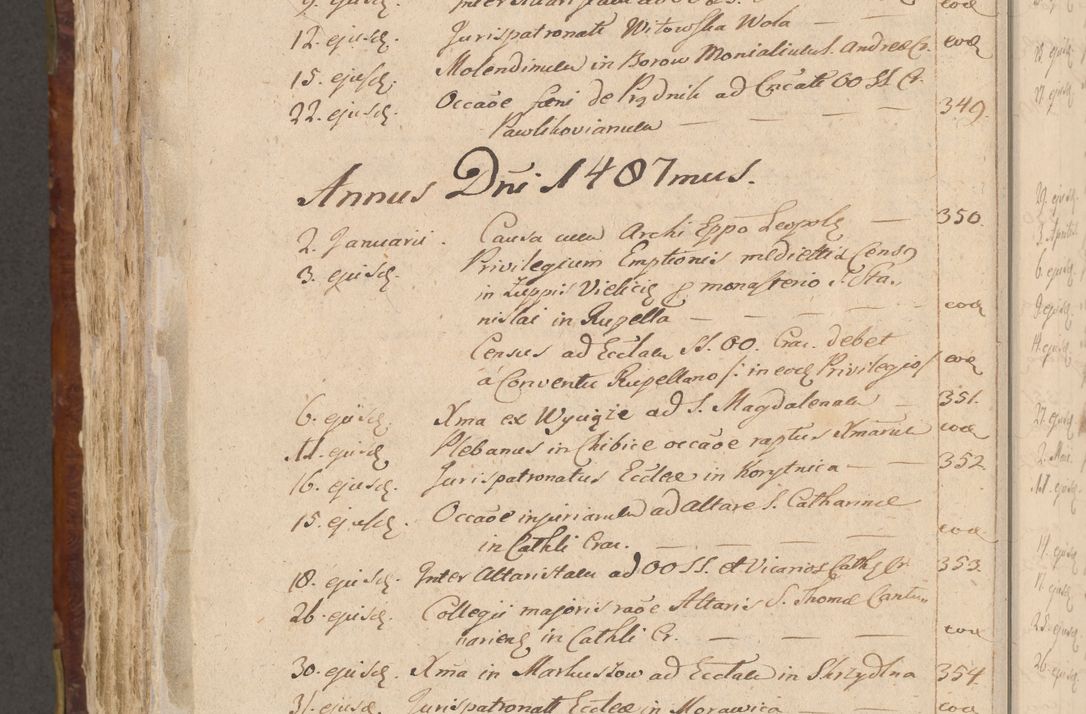 12. ejusd. Jurispatronatt Witowska Wola — — eod
15. ejusd. Molendinum in Borow Monialium S. Andreæ Cr. eod
22. ejusd. Occaõe fæni de Prądnik ad Eccate OO SS Cr.
Pawlikovianum — — — — 349.
Annus Dñi 1487mus.
2. Januarii. Causa cum Archi Eppo Leopol — 350.
3. ejusd. Privilegium Emptionis mediettis Cens9
in Zuppis Vielicie p monasterio S. Sta,
nislai in Rupella — — — — — eod
Census ad Ecclam SS. OO. Crac. debet
a Conventu Rupellano /: in eod Privilegio/ eod
6. ejusd. Xma ex Wyciąże ad S. Magdalenam — 351.
11. ejusd. Plebanus in Chibice occaõe raptus Xmarum eod
16. ejusd. Jurispatronatus Ecclæ in Korytnica — — 352
15. ejusd. Occaõe injuriarum ad altare S. Catharinæ
in Cathli Crac. — — — — — eod
18. ejusd. Inter Altaristam ad OO SS. et Vicarios Cath Cr. 353
26. ejusd. Collegii majoris raõe Altaris S. Thomæ Cantu
nariens in Cathli Cr. — — — — eod
30. ejusd. Xma in Markuszow ad Ecclam in Skrzydlna 354
31. ejusd. Jurispatronatt Ecclæ in Morawica — — eod